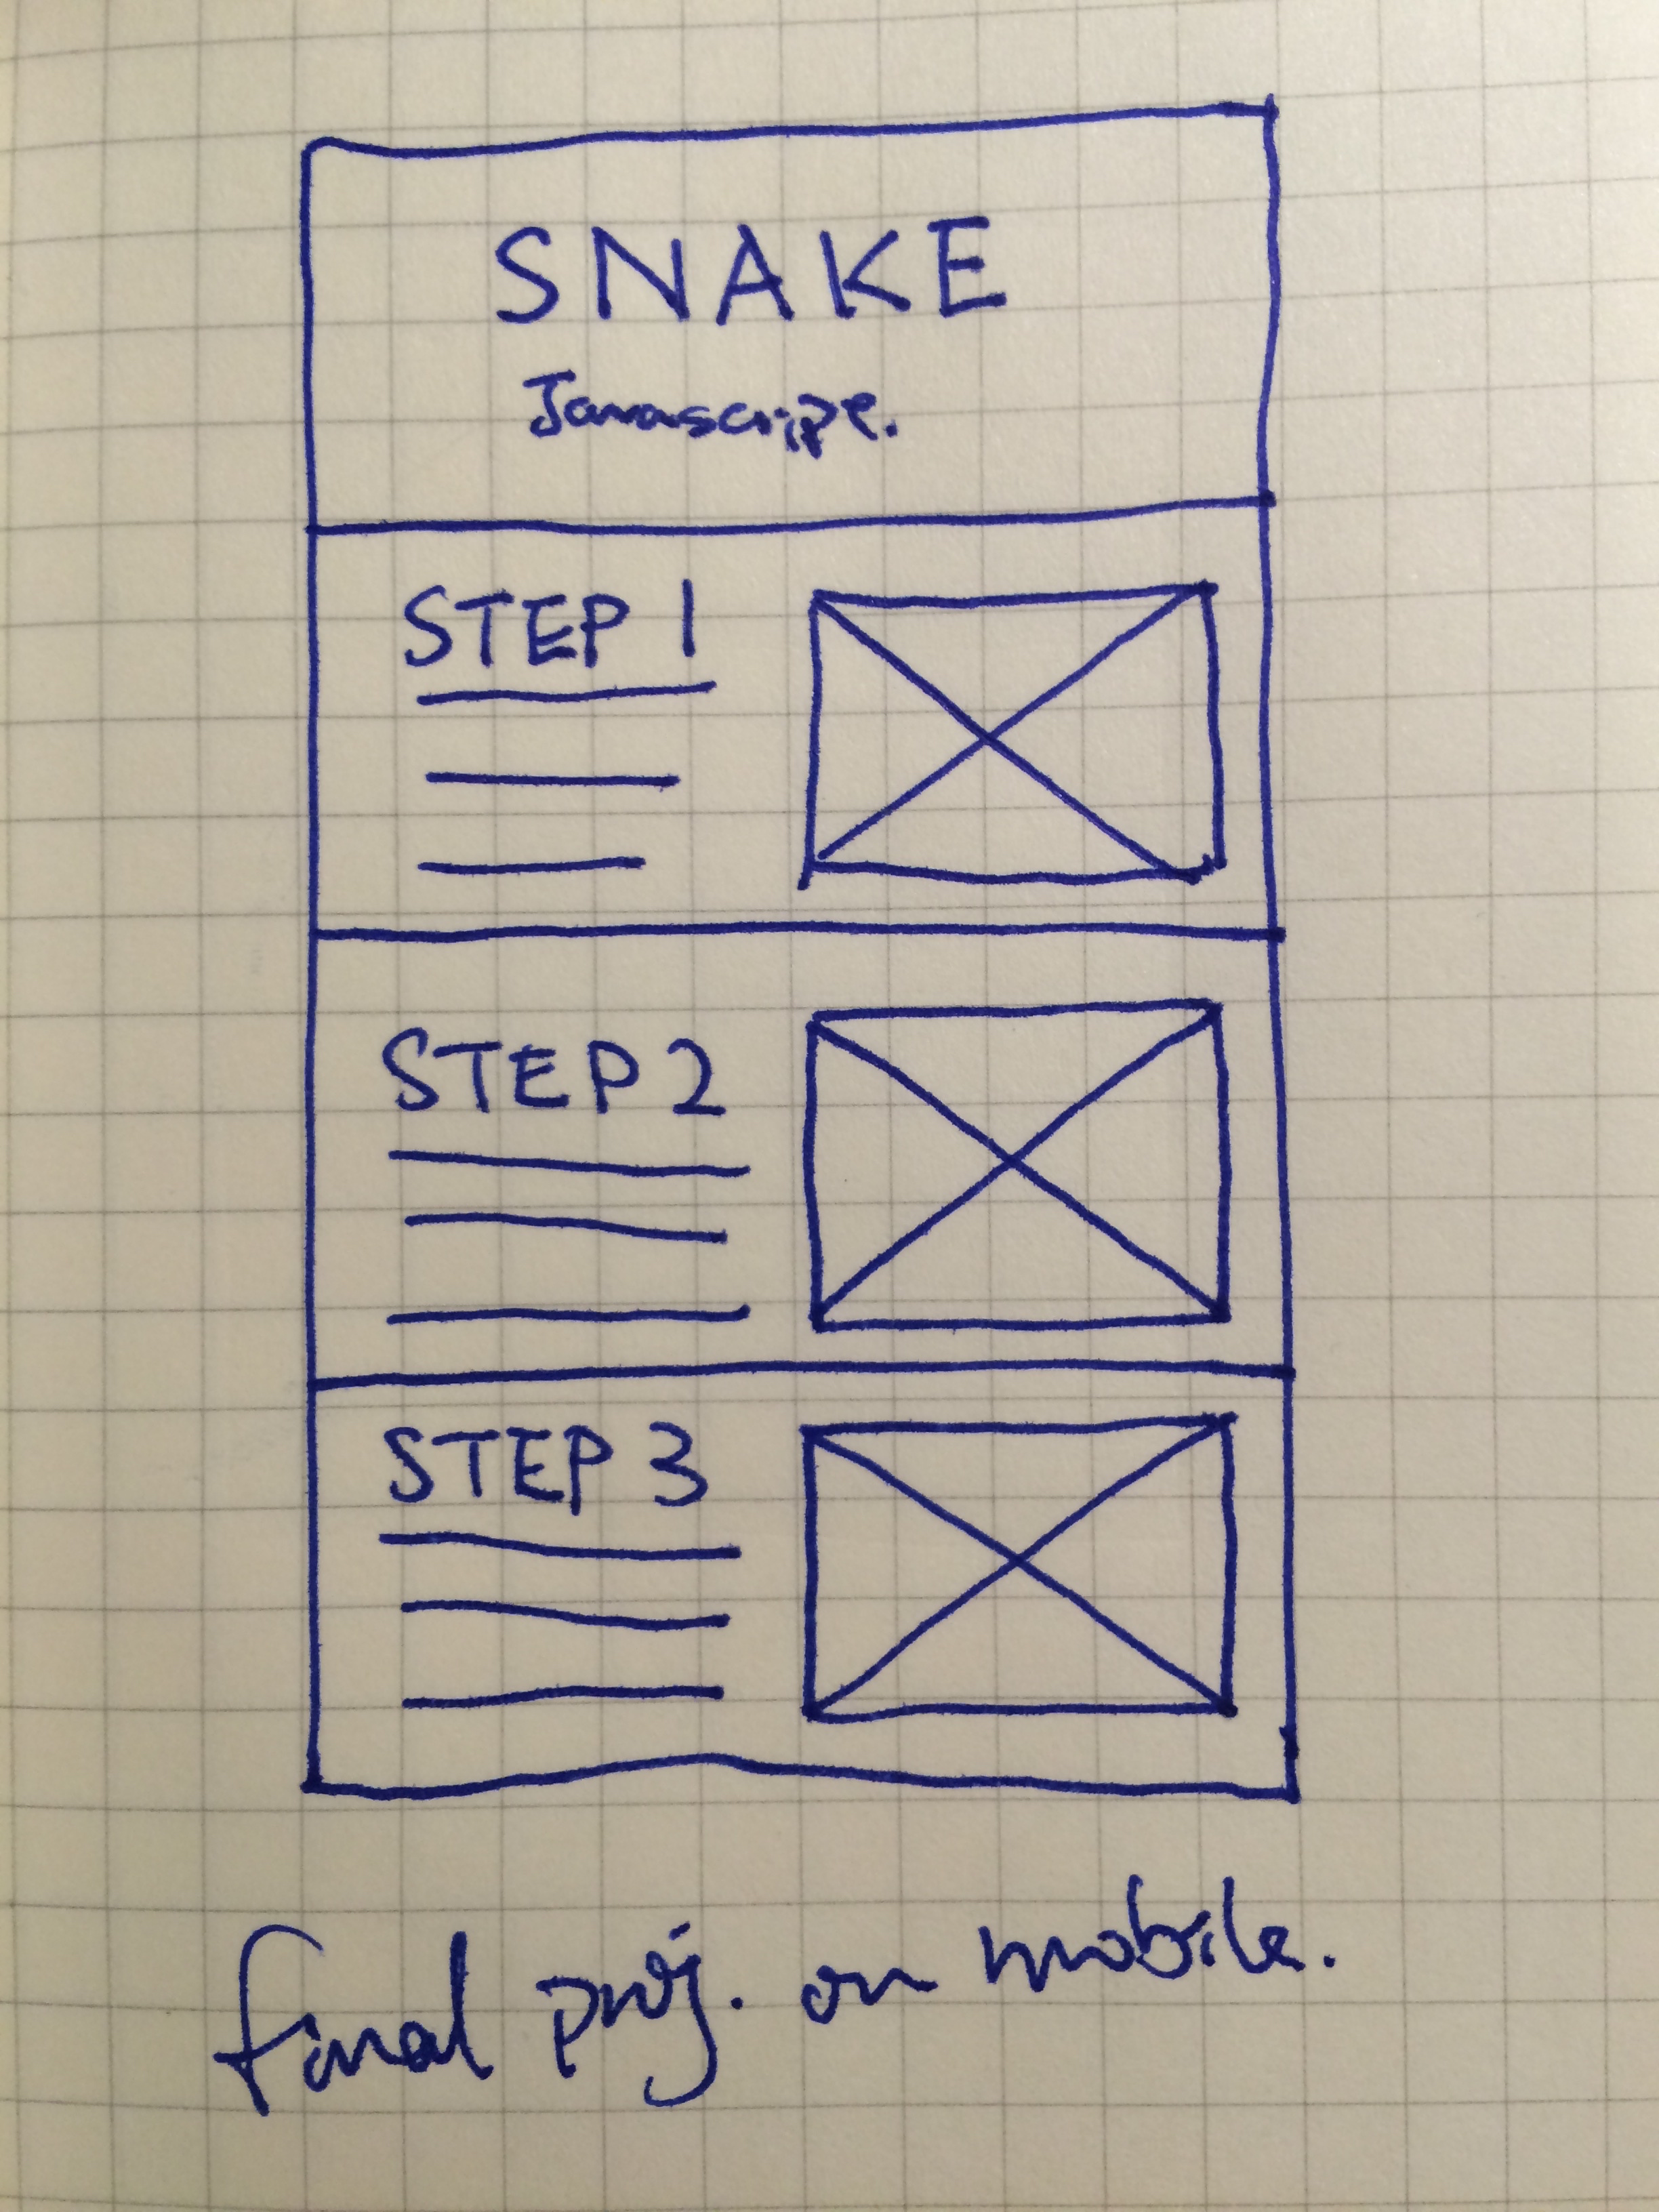 SNAKE
Javascript.
STEP 1
STEP 2
STEP 3
final proj. on mobile.